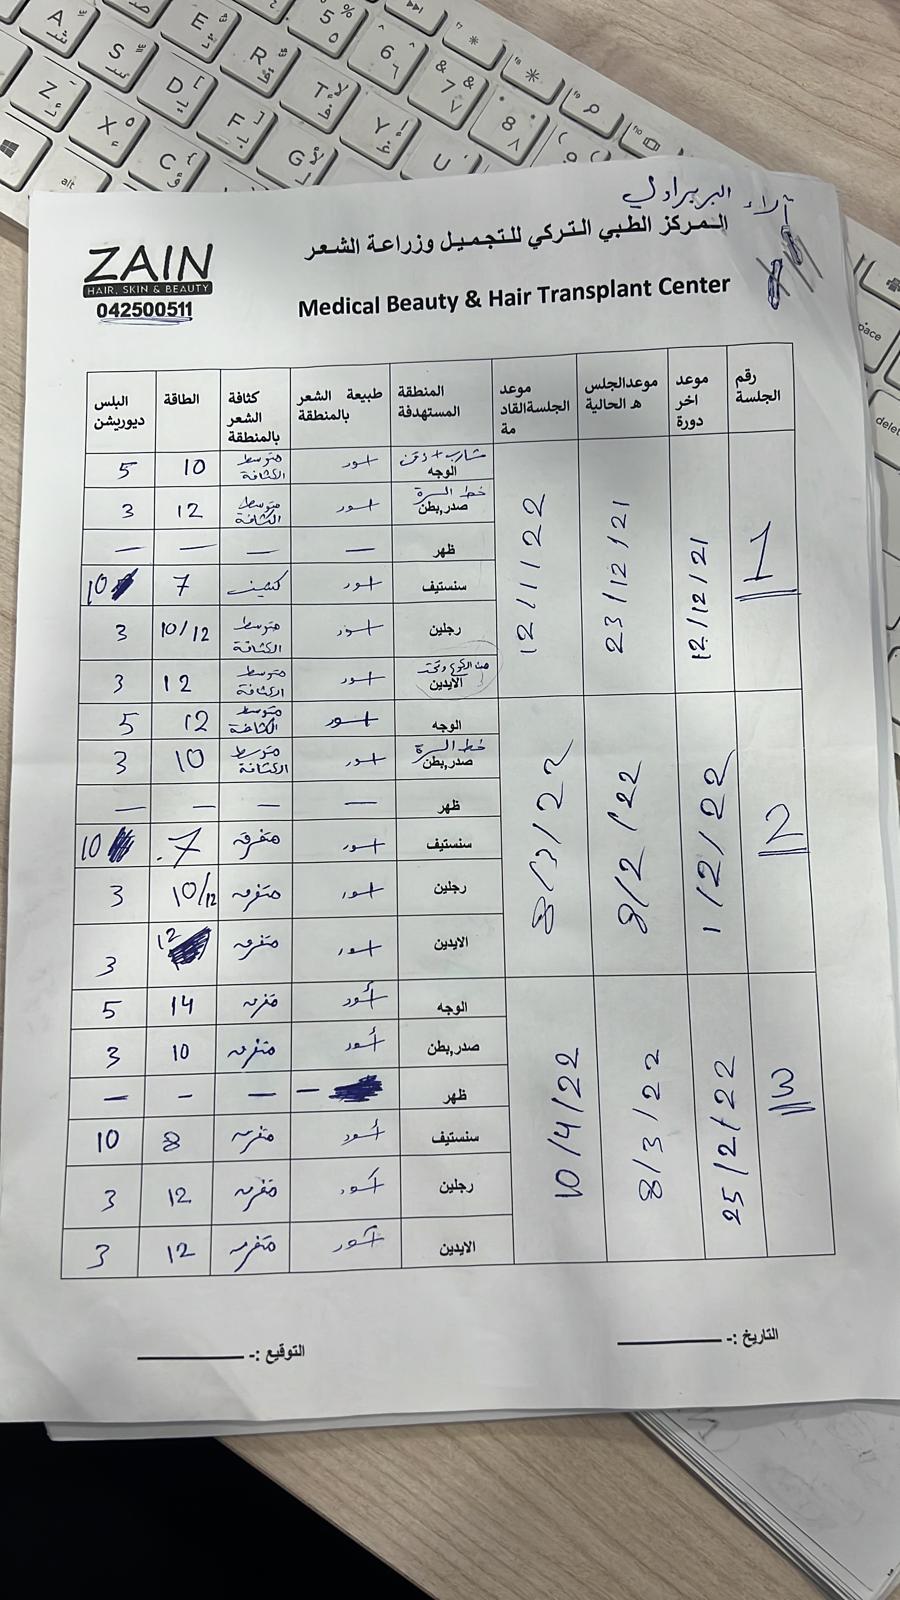 آلاء البربراوي
المركز الطبي التركي للتجميل وزراعة الشعر
Medical Beauty & Hair Transplant Center
ZAIN
HAIR, SKIN & BEAUTY
042500511
رقم الجلسة | موعد اخر دورة | موعدالجلسه الحالية | موعد الجلسةالقادمة | المنطقة المستهدفة | طبيعة الشعر بالمنطقة | كثافة الشعر بالمنطقة | الطاقة | البلس ديوريشن
1 | 12/12/21 | 23/12/21 | 12/1/22
شارب + ذقن الوجه | اسود | متوسط الكثافة | 10 | 5
خط السرة صدر,بطن | اسود | متوسط الكثافة | 12 | 3
ظهر | — | — | — | —
سنستيف | اسود | كثيف | 7 | 10
رجلين | اسود | متوسط الكثافة | 10/12 | 3
الايدين | اسود | متوسط الكثافة | 12 | 3
2 | 1/2/22 | 8/2/22 | 8/3/22
الوجه | اسود | متوسط الكثافة | 12 | 5
خط السرة صدر,بطن | اسود | متوسط الكثافة | 10 | 3
ظهر | — | — | — | —
سنستيف | اسود | متفرق | 7 | 10
رجلين | اسود | متفرق | 10/12 | 3
الايدين | اسود | متفرق | 12 | 3
3 | 25/2/22 | 8/3/22 | 10/4/22
الوجه | أسود | متفرق | 14 | 5
صدر,بطن | أسود | متفرق | 10 | 3
ظهر | — | — | - | —
سنستيف | أسود | متفرق | 8 | 10
رجلين | أسود | متفرق | 12 | 3
الايدين | أسود | متفرق | 12 | 3
التاريخ :- ________
التوقيع :- ________